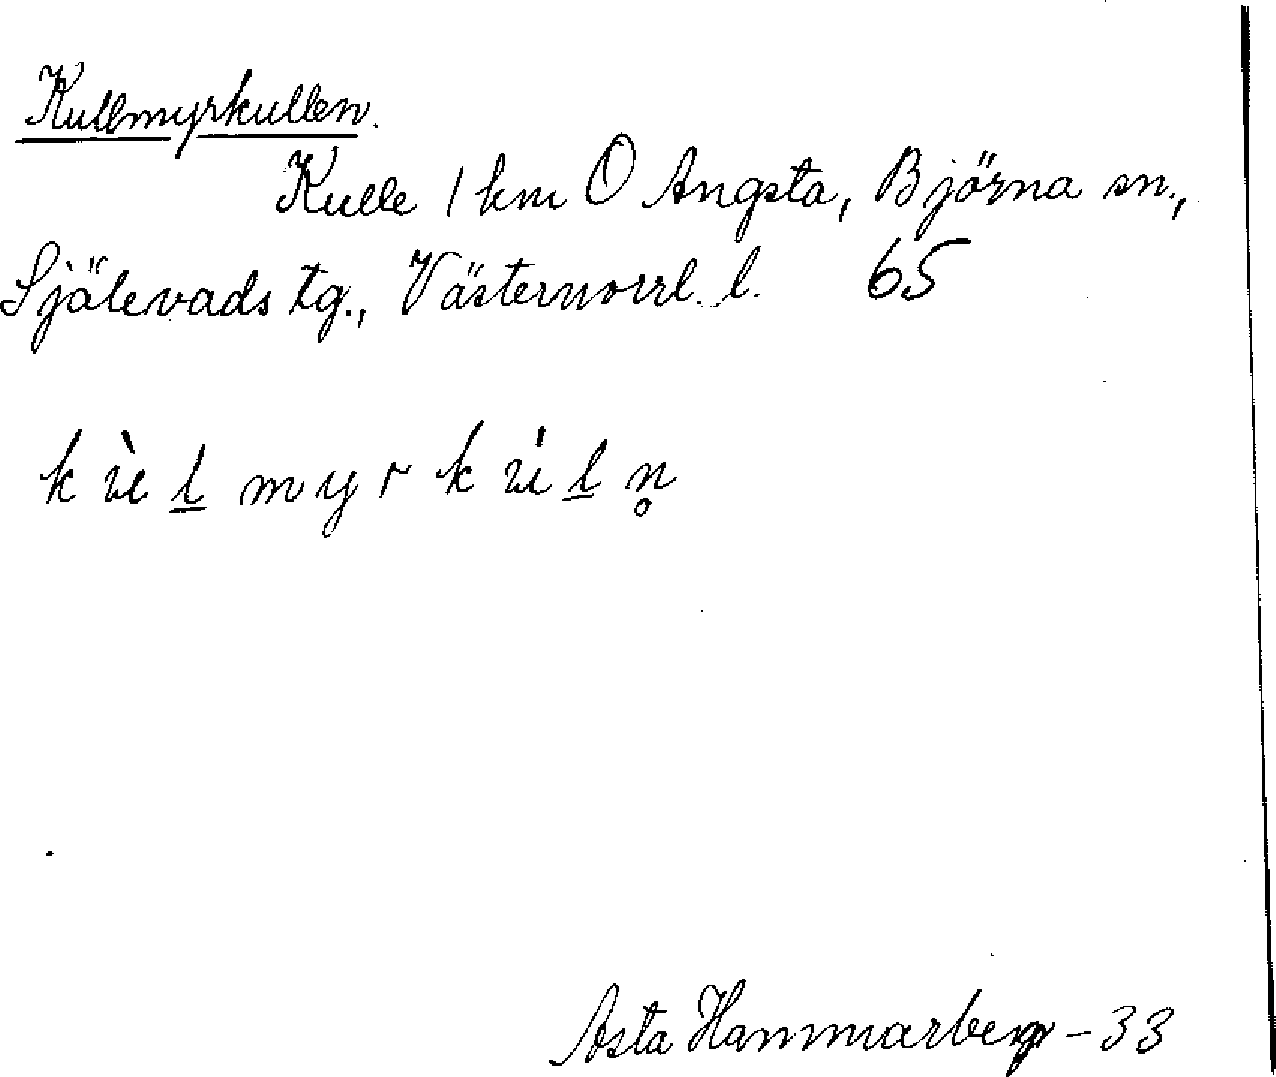 Kullmyrkullen.
Kulle 1 km O Angsta, Björna sn.,
Själevads tg., Västernorrl. l. 65
k ù l̲ m y r k ú l̲ n̥
Asta Hammarberg -33